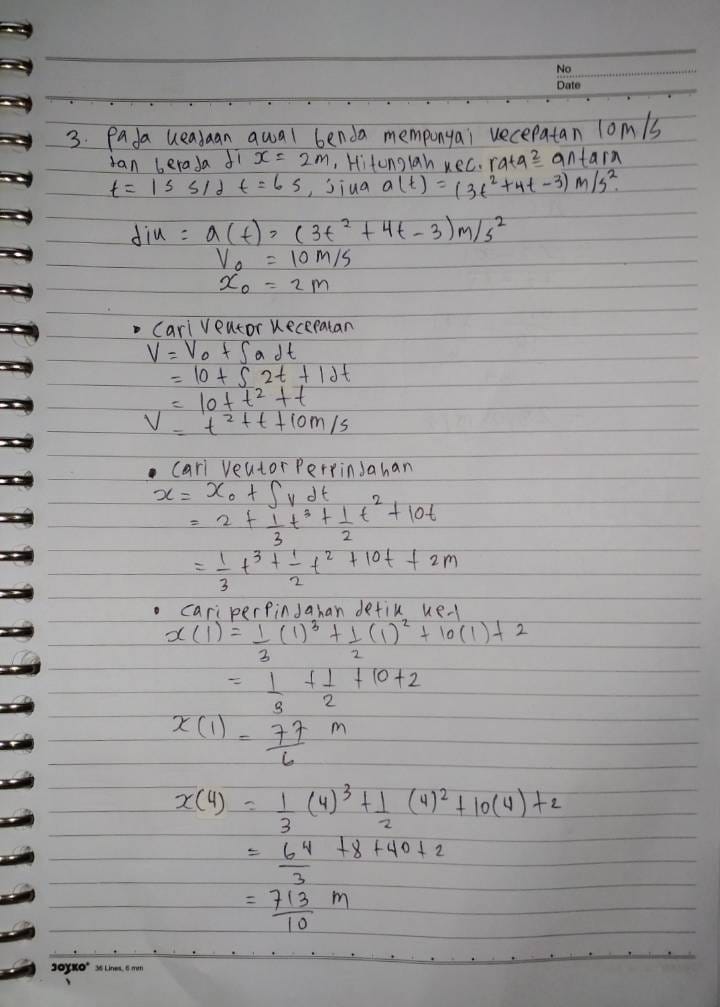 No
Date
3. Pada keadaan awal benda mempunyai kecepatan 10 m/s
dan berada di x = 2m, Hitunglah kec. rata² antara
t = 1s s/d t = 6s, jika a(t) = (3t² + 4t - 3) m/s².
dik = a(t) = (3t² + 4t - 3) m/s²
V₀ = 10 m/s
x₀ = 2 m
• Cari Vektor Kecepatan
V = V₀ + ∫ a dt
= 10 + ∫ 2t + 1 dt
= 10 + t² + t
V = t² + t + 10 m/s
• Cari Vektor Perpindahan
x = x₀ + ∫ v dt
= 2 + 1/3 t³ + 1/2 t² + 10t
= 1/3 t³ + 1/2 t² + 10t + 2m
• Cari perpindahan detik ke-1
x(1) = 1/3 (1)³ + 1/2 (1)² + 10(1) + 2
= 1/3 + 1/2 + 10 + 2
x(1) = 77/6 m
x(4) = 1/3 (4)³ + 1/2 (4)² + 10(4) + 2
= 64/3 + 8 + 40 + 2
= 713/10 m
JOYKO® 36 Lines, 6 mm